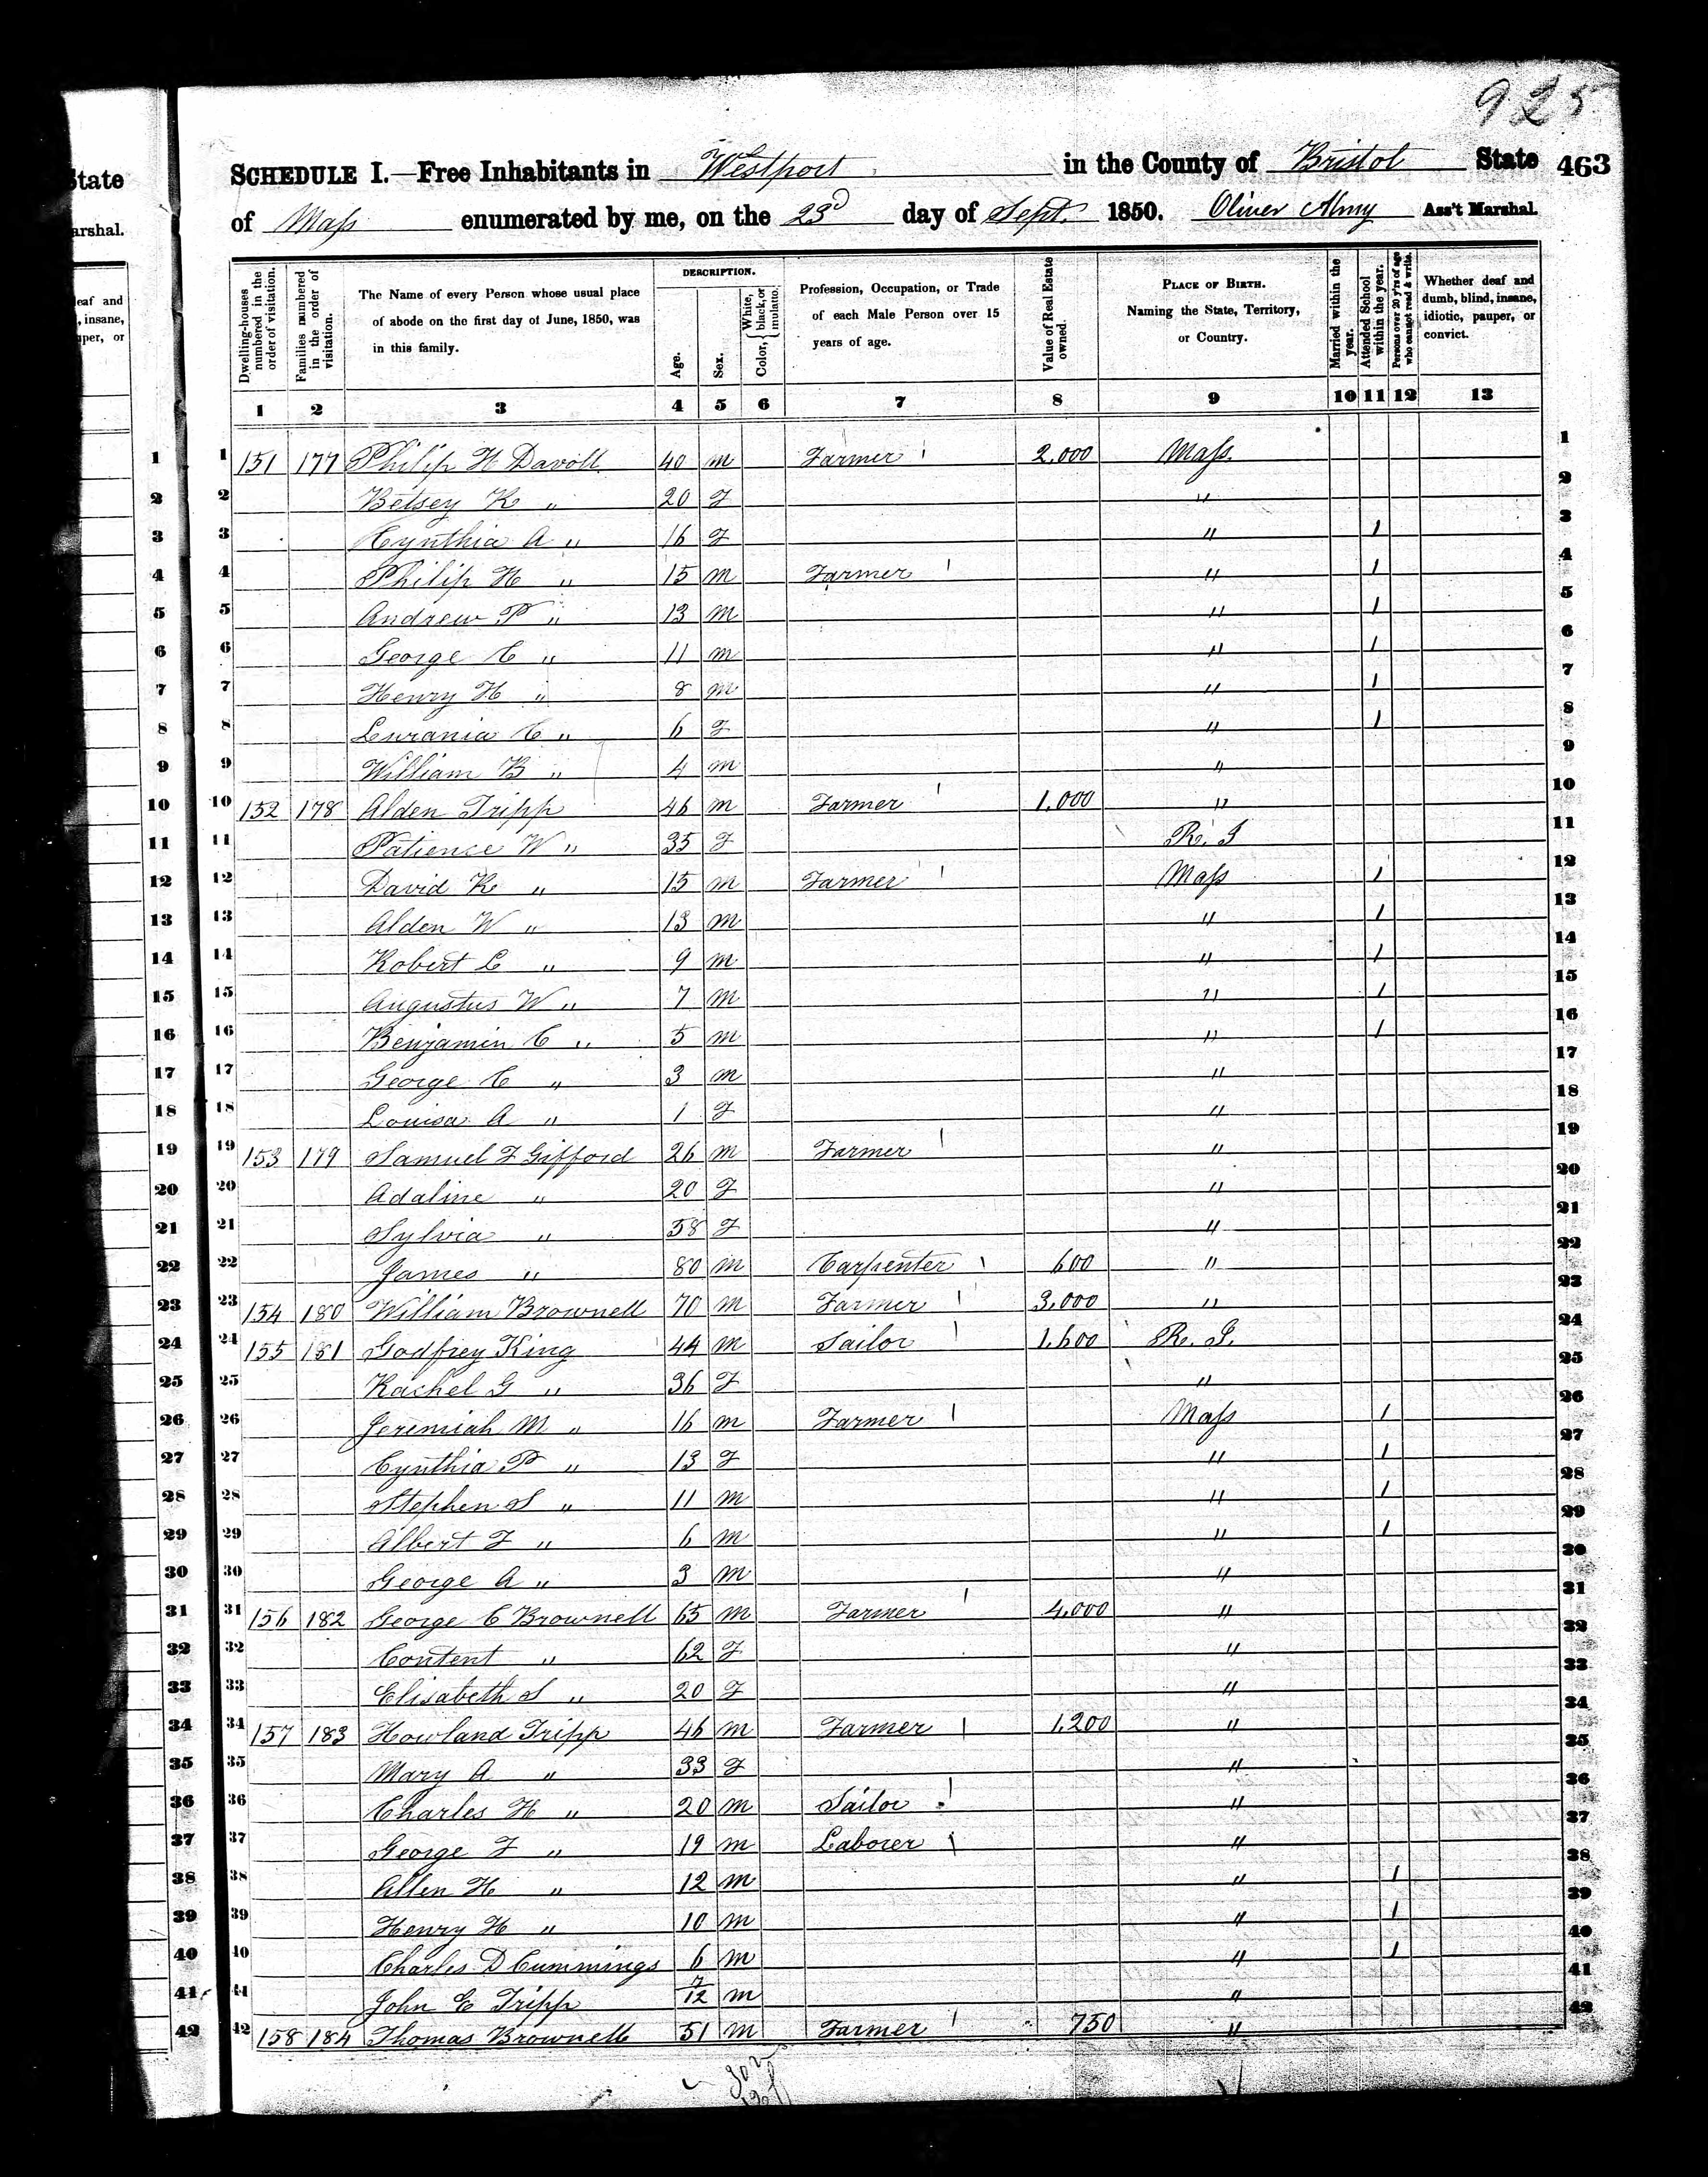 925
State
SCHEDULE I.—Free Inhabitants in Westport in the County of Bristol State 463
arshal.
of Mass enumerated by me, on the 23d day of Sept. 1850. Oliver Almy Ass't Marshal.
eaf and
, insane,
uper, or
Dwelling-houses numbered in the order of visitation.
Families numbered in the order of visitation.
The Name of every Person whose usual place of abode on the first day of June, 1850, was in this family.
DESCRIPTION.
Age.
Sex.
Color, { White, black, or mulatto.
Profession, Occupation, or Trade of each Male Person over 15 years of age.
Value of Real Estate owned.
PLACE OF BIRTH. Naming the State, Territory, or Country.
Married within the year.
Attended School within the year.
Persons over 20 y'rs of age who cannot read & write.
Whether deaf and dumb, blind, insane, idiotic, pauper, or convict.
1 2 3 4 5 6 7 8 9 10 11 12 13
1 1 151 177 Philip H Davoll 40 m Farmer 1 2,000 Mass. 1
2 2 Betsey K " 20 F " 2
3 3 Cynthia A " 16 F " 1 3
4 4 Philip H " 15 m Farmer 1 " 1 4
5 5 Andrew P " 13 m " 1 5
6 6 George C " 11 m " 1 6
7 7 Henry H " 8 m " 1 7
8 8 Lurania C " 6 F " 1 8
9 9 William B " 4 m " 9
10 10 152 178 Alden Tripp 46 m Farmer 1 1,000 " 10
11 11 Patience W " 35 F R. I 11
12 12 David K " 15 m Farmer 1 Mass 1 12
13 13 Alden W " 13 m " 1 13
14 14 Robert L " 9 m " 1 14
15 15 Augustus W " 7 m " 1 15
16 16 Benjamin C " 5 m " 1 16
17 17 George C " 3 m " 17
18 18 Louisa A " 1 F " 18
19 19 153 179 Samuel F Gifford 26 m Farmer 1 " 19
20 20 Adaline " 20 F " 20
21 21 Sylvia " 58 F " 21
22 22 James " 80 m Carpenter 1 600 " 22
23 23 154 180 William Brownell 70 m Farmer 1 3,000 " 23
24 24 155 181 Godfrey King 44 m Sailor 1 1,600 R. I. 24
25 25 Rachel G " 36 F " 25
26 26 Jeremiah M " 16 m Farmer 1 Mass 1 26
27 27 Cynthia P " 13 F " 1 27
28 28 Stephen S " 11 m " 1 28
29 29 Albert F " 6 m " 1 29
30 30 George A " 3 m " 30
31 31 156 182 George C Brownell 65 m Farmer 1 4,000 " 31
32 32 Content " 62 F " 32
33 33 Elisabeth S " 20 F " 33
34 34 157 183 Howland Tripp 46 m Farmer 1 1,200 " 34
35 35 Mary A " 33 F " 35
36 36 Charles H " 20 m Sailor 1 " 36
37 37 George F " 19 m Laborer 1 " 37
38 38 Allen H " 12 m " 1 38
39 39 Henry H " 10 m " 1 39
40 40 Charles D Cummings 6 m " 1 40
41 41 John E Tripp 7/12 m " 41
42 42 158 184 Thomas Brownell 51 m Farmer 1 750 " 42